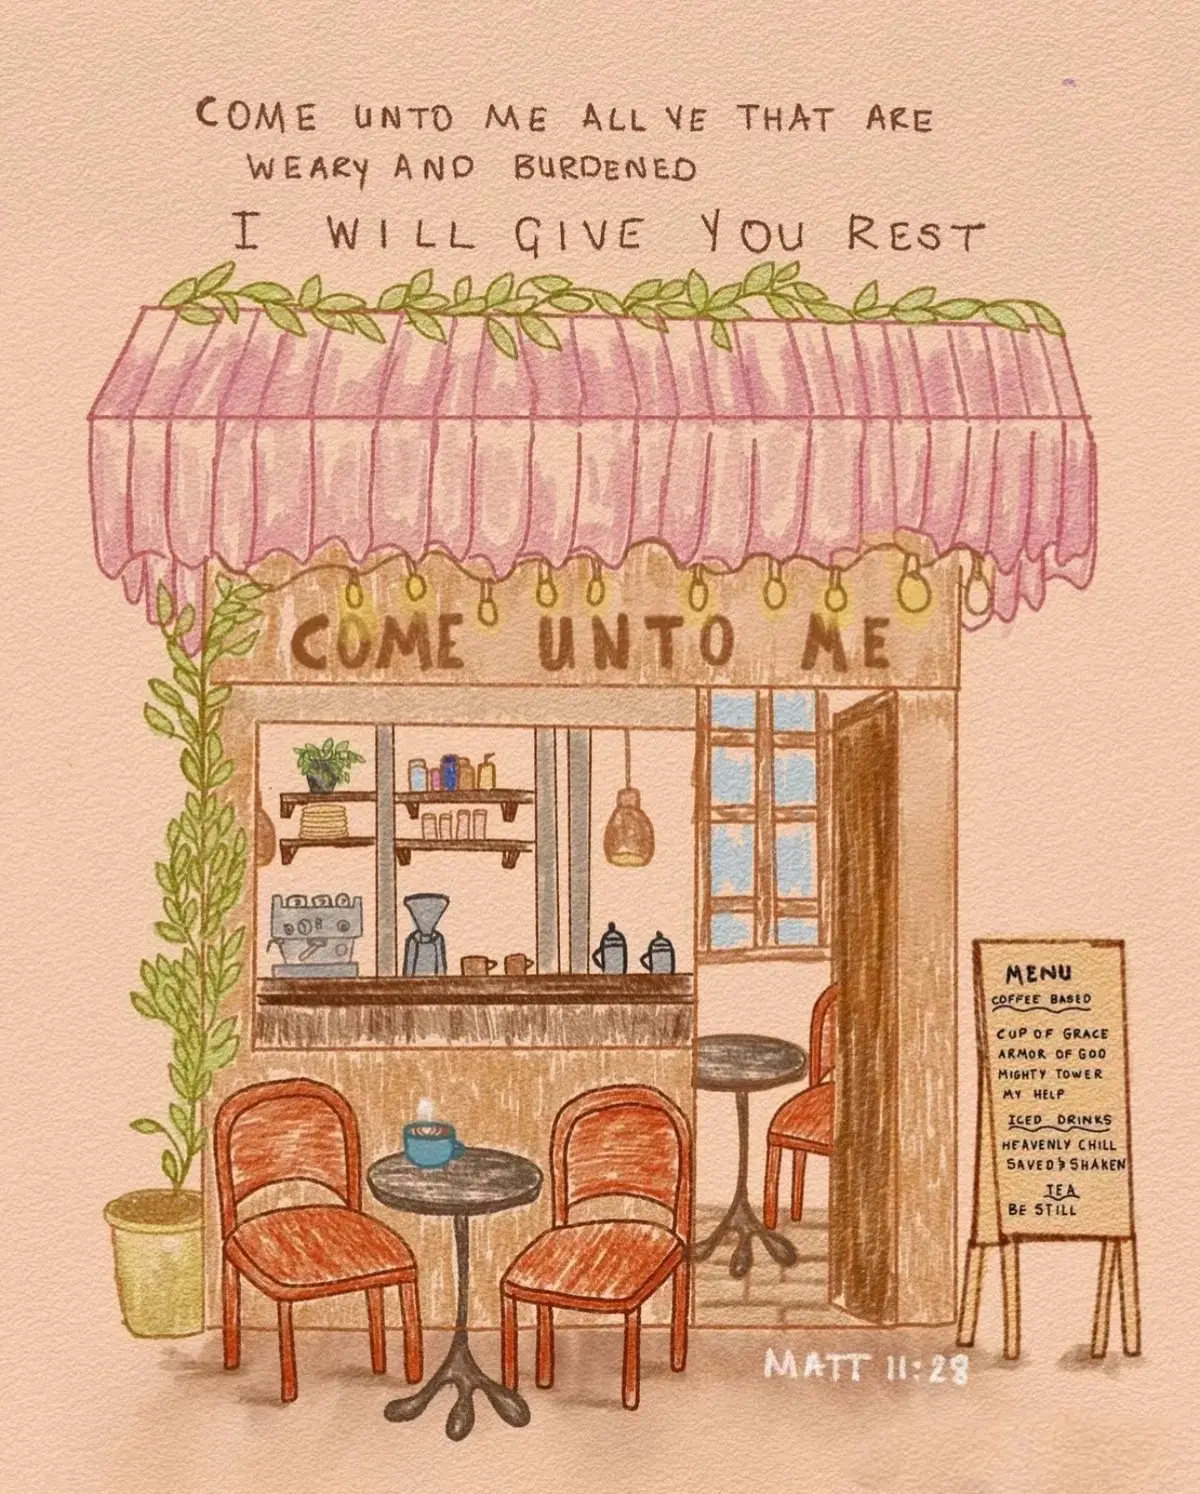 COME UNTO ME ALL YE THAT ARE
WEARY AND BURDENED
I WILL GIVE YOU REST
COME UNTO ME
MENU
COFFEE BASED
CUP OF GRACE
ARMOR OF GOD
MIGHTY TOWER
MY HELP
ICED DRINKS
HEAVENLY CHILL
SAVED & SHAKEN
TEA
BE STILL
MATT 11:28